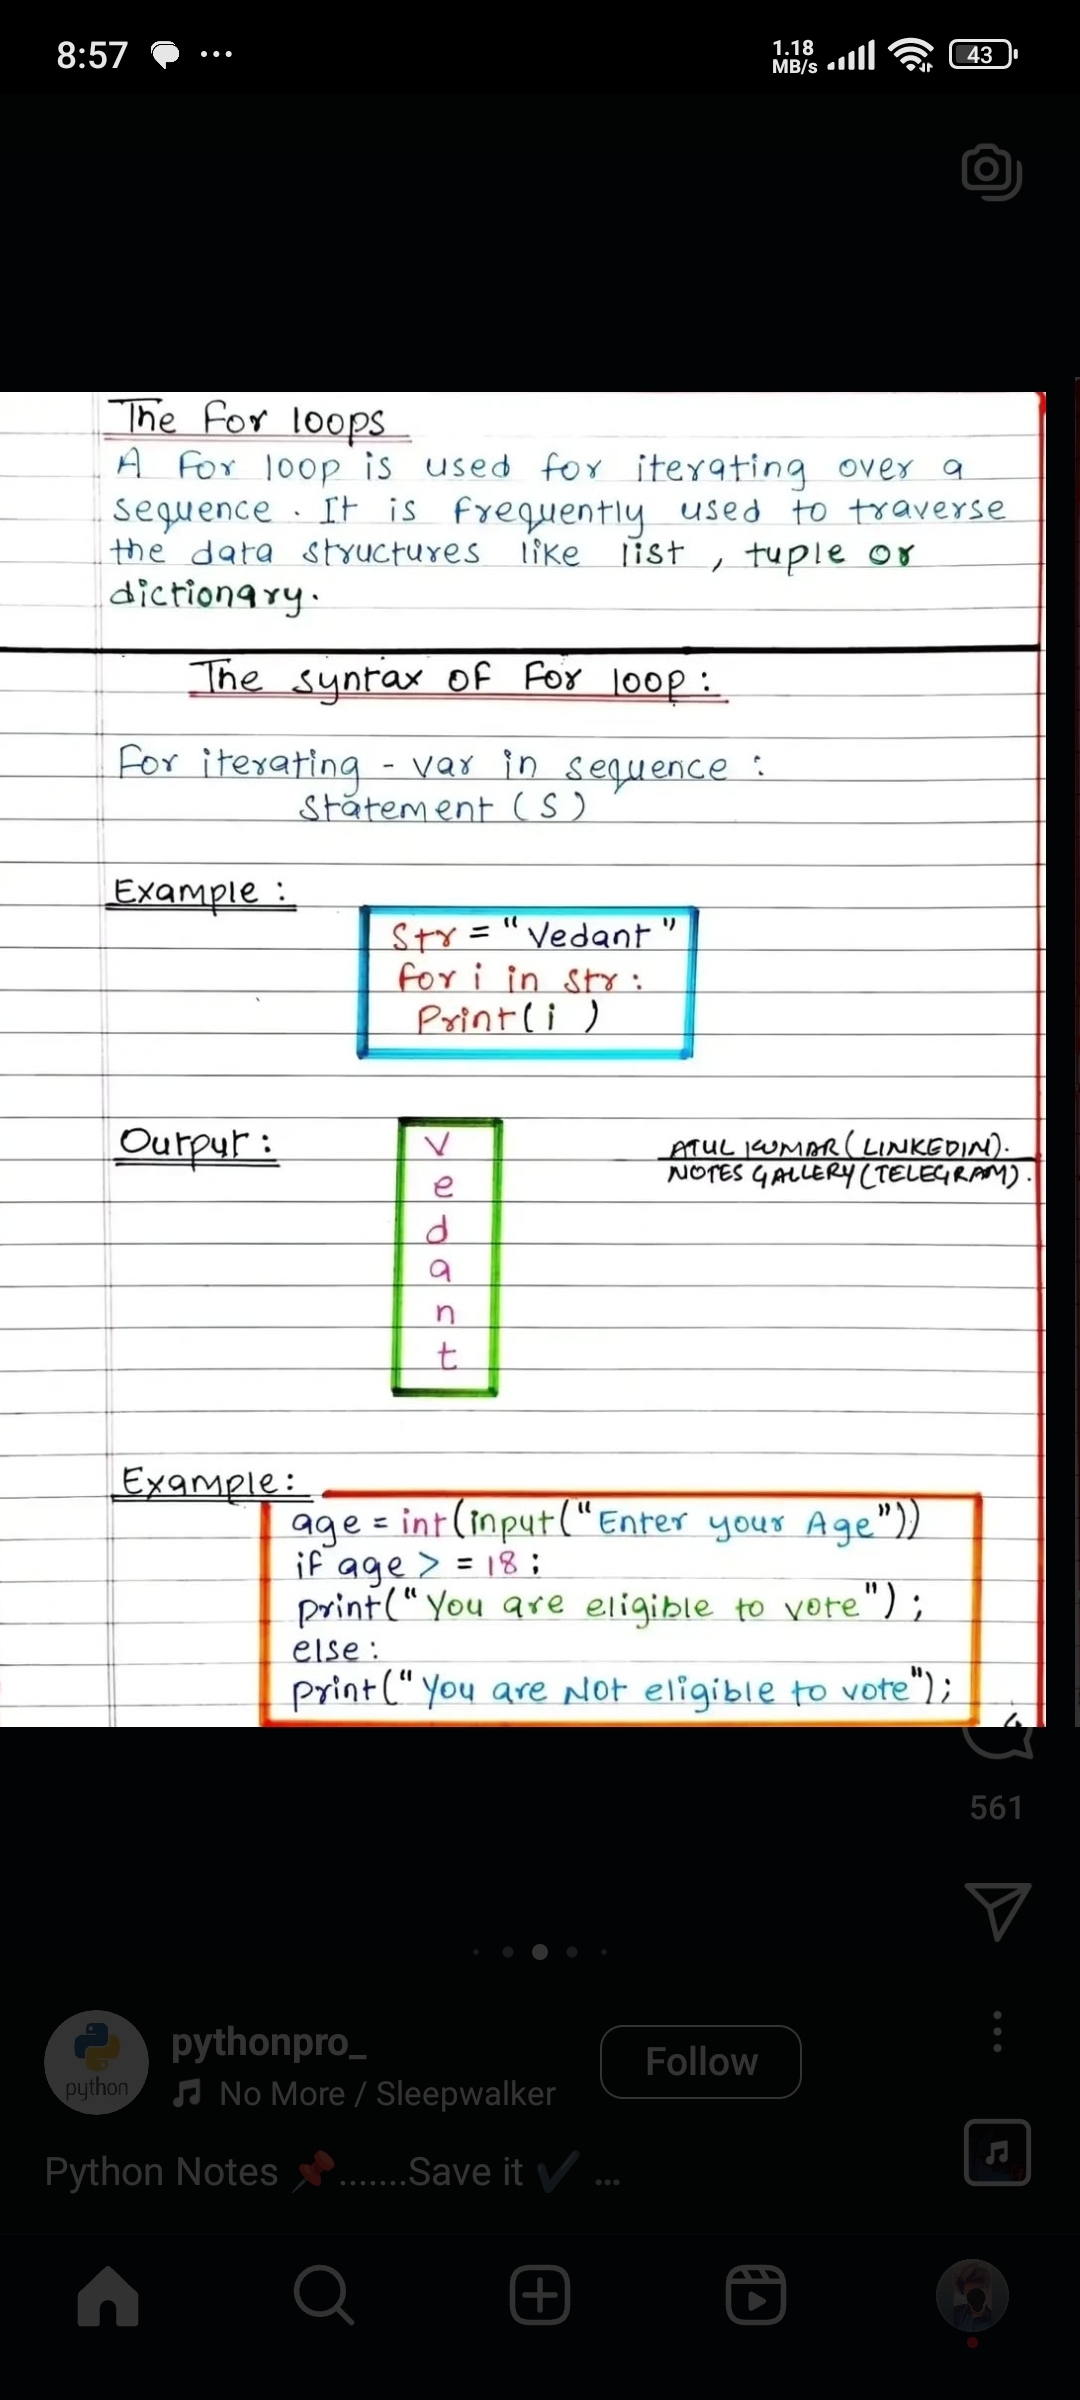 8:57
1.18
MB/s
43
The For loops
A For loop is used for iterating over a
sequence. It is frequently used to traverse
the data structures like list, tuple or
dictionary.
The syntax of For loop:
For iterating - var in sequence :
Statement (S)
Example :
Str = "Vedant"
for i in str :
Print( i )
Output :
V
e
d
a
n
t
ATUL KUMAR (LINKEDIN).
NOTES GALLERY (TELEGRAM).
Example:
age = int(input("Enter your Age"))
if age > = 18 ;
print("You are eligible to vote") ;
else :
print("You are Not eligible to vote");
561
python
pythonpro_
No More / Sleepwalker
Follow
Python Notes 📌.......Save it ✔ ...